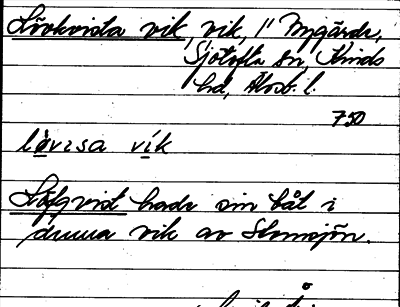 Lövkvista vik, vik, 1" Nygärde,
Sjötofta sn, Kinds
hd, Älvsb. l.
750
lövɩsa vík
Löfqvist hade sin båt i
denna vik av Stomsjön.